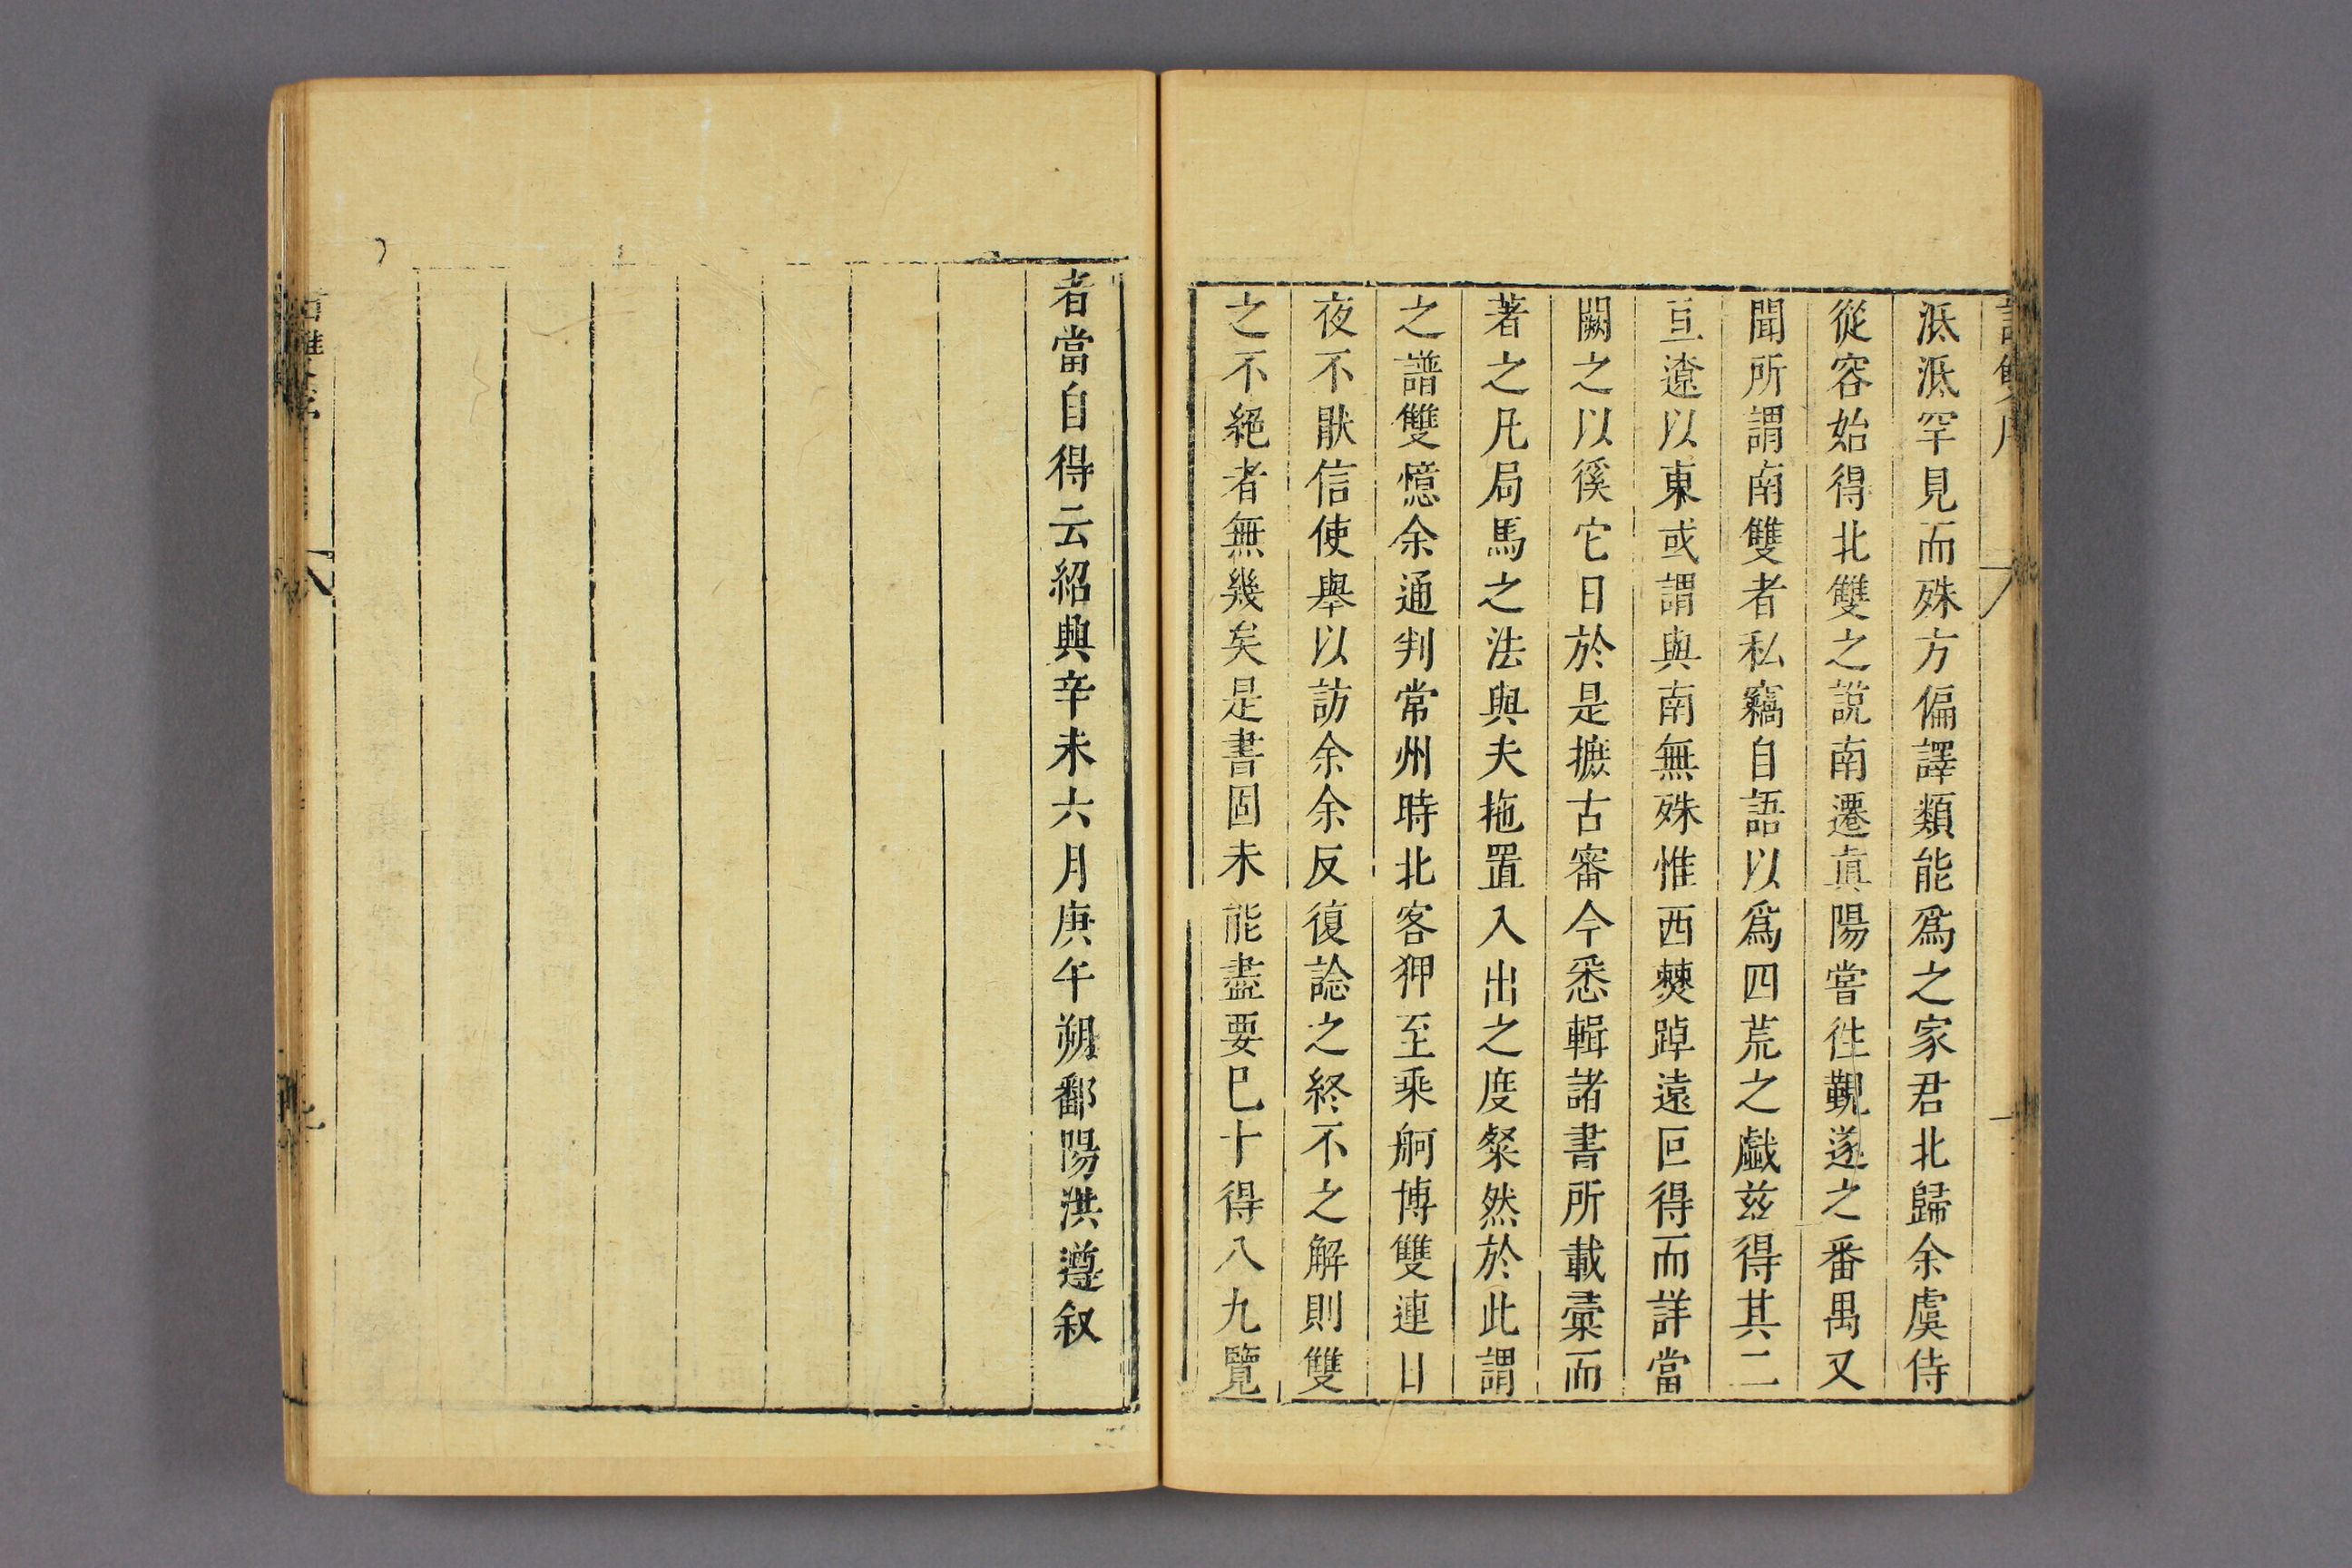 譜雙序
泒泒罕見而殊方偏譯類能爲之家君北歸余虞侍
從容始得北雙之說南遷真陽嘗徃覲遂之番禺又
聞所謂南雙者私竊自語以爲四荒之戲玆得其二
亘遼以東或謂與南無殊惟西僰踔遠叵得而詳當
闕之以徯它日於是摭古審今悉輯諸書所載彚而
著之凡局馬之法與夫拖置入出之度粲然於此謂
之譜雙憶余通判常州時北客狎至乘舸博雙連日
夜不猒信使舉以訪余余反復諗之終不之解則雙
之不絕者無幾矣是書固未能盡要巳十得八九覽
者當自得云紹興辛未六月庚午朔鄱陽洪遵叙